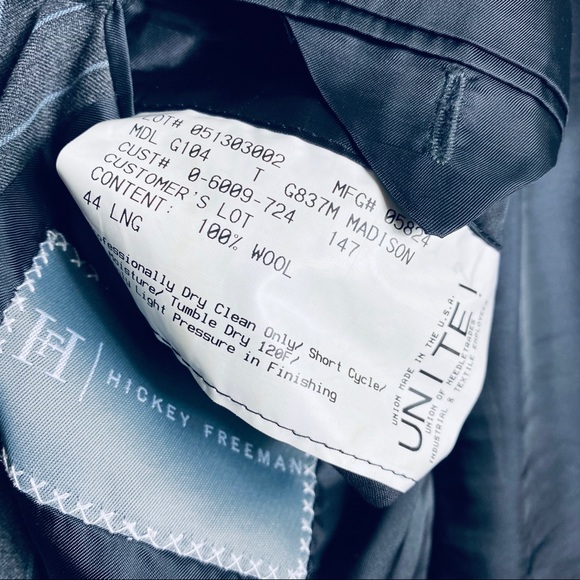 LOT# 051303002
MDL G104 T G837M MADISON
MFG# 05824
CUST# 0-6009-724 147
CUSTOMER'S LOT
CONTENT: 100% WOOL
44 LNG
Professionally Dry Clean Only/ Short Cycle/
Moisture/ Tumble Dry 120F/
Light Pressure in Finishing
UNION MADE IN THE U.S.A.
UNITE!
UNION OF NEEDLETRADES
INDUSTRIAL & TEXTILE EMPLOYEES
HF
HICKEY FREEMAN